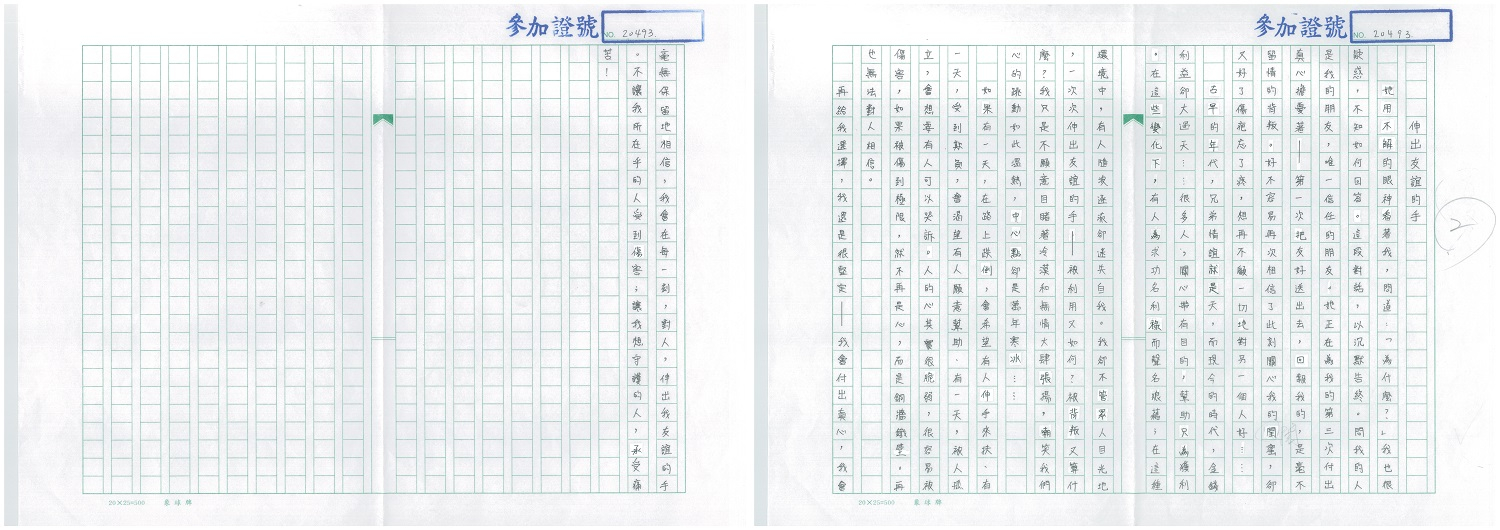 參加證號
NO. 20493.
2
伸出友誼的手
她用不解的眼神看著我,問道:「為什麼?」我也很
疑惑,不知如何回答。這段對話,以沉默告終。問我的人
是我的朋友,唯一信任的朋友。她正在為我的第三次付出
真心擔憂著——第一次把友好送出去,回報我的,是毫不
留情的背叛。好不容易再次相信了此刻關心我的閨蜜,卻
又好了傷疤忘了疼,想再不顧一切地對另一個人好……
古早的年代,兄弟情誼就是天。而現今的時代,金錢
利益卻大過天……很多人,關心帶有目的,幫助只為獲利
。在這些變化下,有人為求功名利祿而聲名狼藉;在這種
環境中,有人隨波逐流卻迷失自我。我卻不管眾人目光地
,一次次伸出友誼的手——被利用又如何?被背叛又算什
麼?我只是不願意目睹著冷漠和無情大肆張揚,嘲笑我們
心的跳動如此溫熱,中心點卻是萬年寒冰……
如果有一天,在路上跌倒,會希望有人伸手來扶、有
一天,受到欺負,會渴望有人願意幫助、有一天,被人孤
立,會想要有人可以哭訴。人的心其實很脆弱,很容易被
傷害,如果被傷到極限,就不再是心,而是銅牆鐵壁,再
也無法對人相信。
再給我選擇,我還是很堅定——我會付出真心,我會
20×25=500
參加證號
NO. 20493.
毫無保留地相信,我會在每一刻,對人,伸出我友誼的手
。不讓我所在乎的人受到傷害;讓我想守護的人,承受痛
苦!
20×25=500